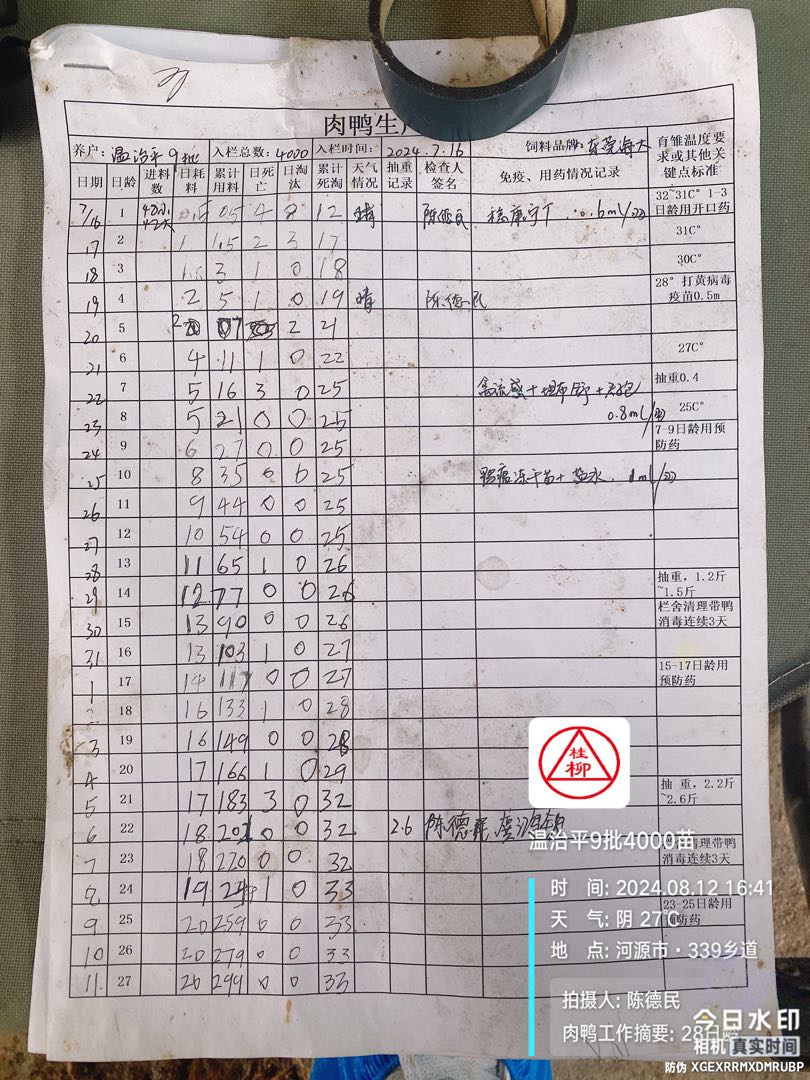 肉鸭生产
养户: 温治平9批 入栏总数: 4000 入栏时间: 2024.7.16 饲料品牌: 东莞海大 育雏温度要求或其他关键点标准
日期 日龄 进料数 日耗料 累计用料 日死亡 日淘汰 累计死淘 天气情况 抽重记录 检查人签名 免疫、用药情况记录
7/16 1 0.5 0.5 4 8 12 晴 陈德民 0.6ml/羽 32~31C° 1-3日龄用开口药
17 2 1 1.5 2 3 17 31C°
18 3 1.5 3 1 0 18 30C°
19 4 2 5 1 0 19 晴 陈德民 28° 打黄病毒疫苗0.5m
20 5 2 07 2 21
21 6 4 11 1 0 22 27C°
22 7 5 16 3 0 25 禽流感+ 抽重0.4
23 8 5 21 0 0 25 0.8ml/羽 25C°
24 9 6 27 0 0 25 7-9日龄用预防药
25 10 8 35 0 0 25 鸭瘟冻干苗+盐水. 1ml/羽
26 11 9 44 0 0 25
27 12 10 54 0 0 25
28 13 11 65 1 0 26
29 14 12 77 0 0 26 抽重，1.2斤~1.5斤
30 15 13 90 0 0 26 栏舍清理带鸭消毒连续3天
31 16 13 103 1 0 27
1 17 14 117 0 0 27 15-17日龄用预防药
2 18 16 133 1 0 28
3 19 16 149 0 0 28
4 20 17 166 1 0 29
5 21 17 183 3 0 32 抽 重，2.2斤~2.6斤
6 22 18 202 0 0 32 2.6 陈德民
7 23 18 220 0 0 32 清理带鸭消毒连续3天
8 24 19 1 0 33
9 25 20 259 0 0 33 23-25日龄用预防药
10 26 20 279 0 0 33
11 27 20 299 0 0 33
桂柳
温治平9批4000苗
时 间: 2024.08.12 16:41
天 气: 阴 27℃
地 点: 河源市·339乡道
拍摄人: 陈德民
肉鸭工作摘要: 28日龄
今日水印
相机 真实时间
防伪 XGEXRRMXDMRUBP